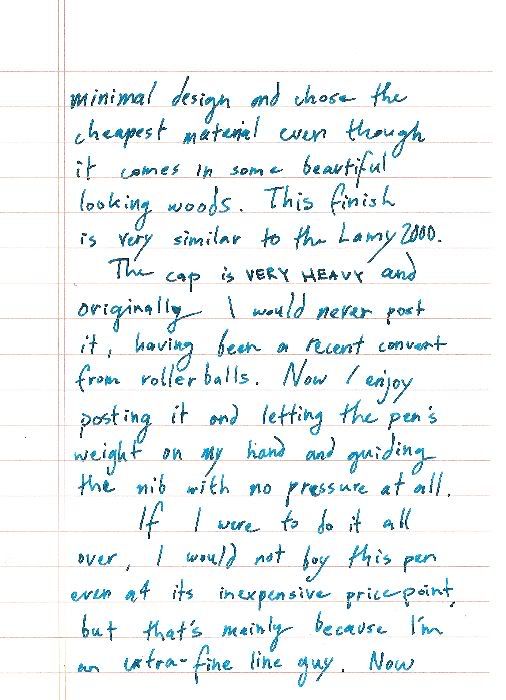 minimal design and chose the
cheapest material even though
it comes in some beautiful
looking woods. This finish
is very similar to the Lamy 2000.
The cap is VERY HEAVY and
originally I would never post
it, having been a recent convert
from rollerballs. Now I enjoy
posting it and letting the pen's
weight on my hand and guiding
the nib with no pressure at all.
If I were to do it all
over, I would not buy this pen
even at its inexpensive pricepoint,
but that's mainly because I'm
an extra-fine line guy. Now